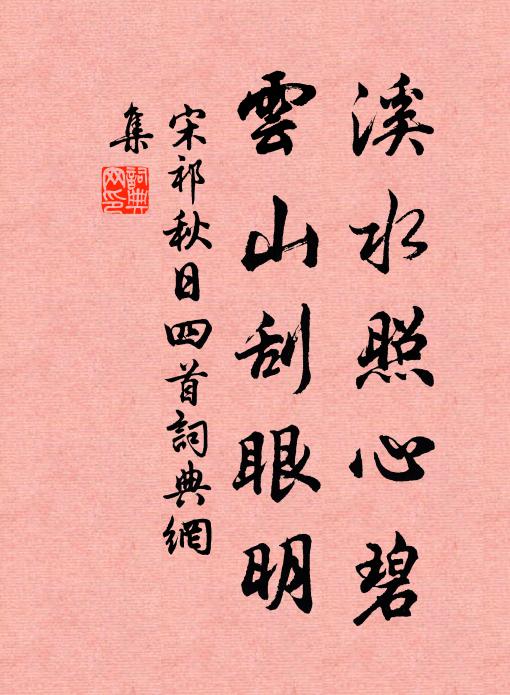 溪水照心碧
雲山刮眼明
宋祁秋日四首詞典網
集
詞典
网印